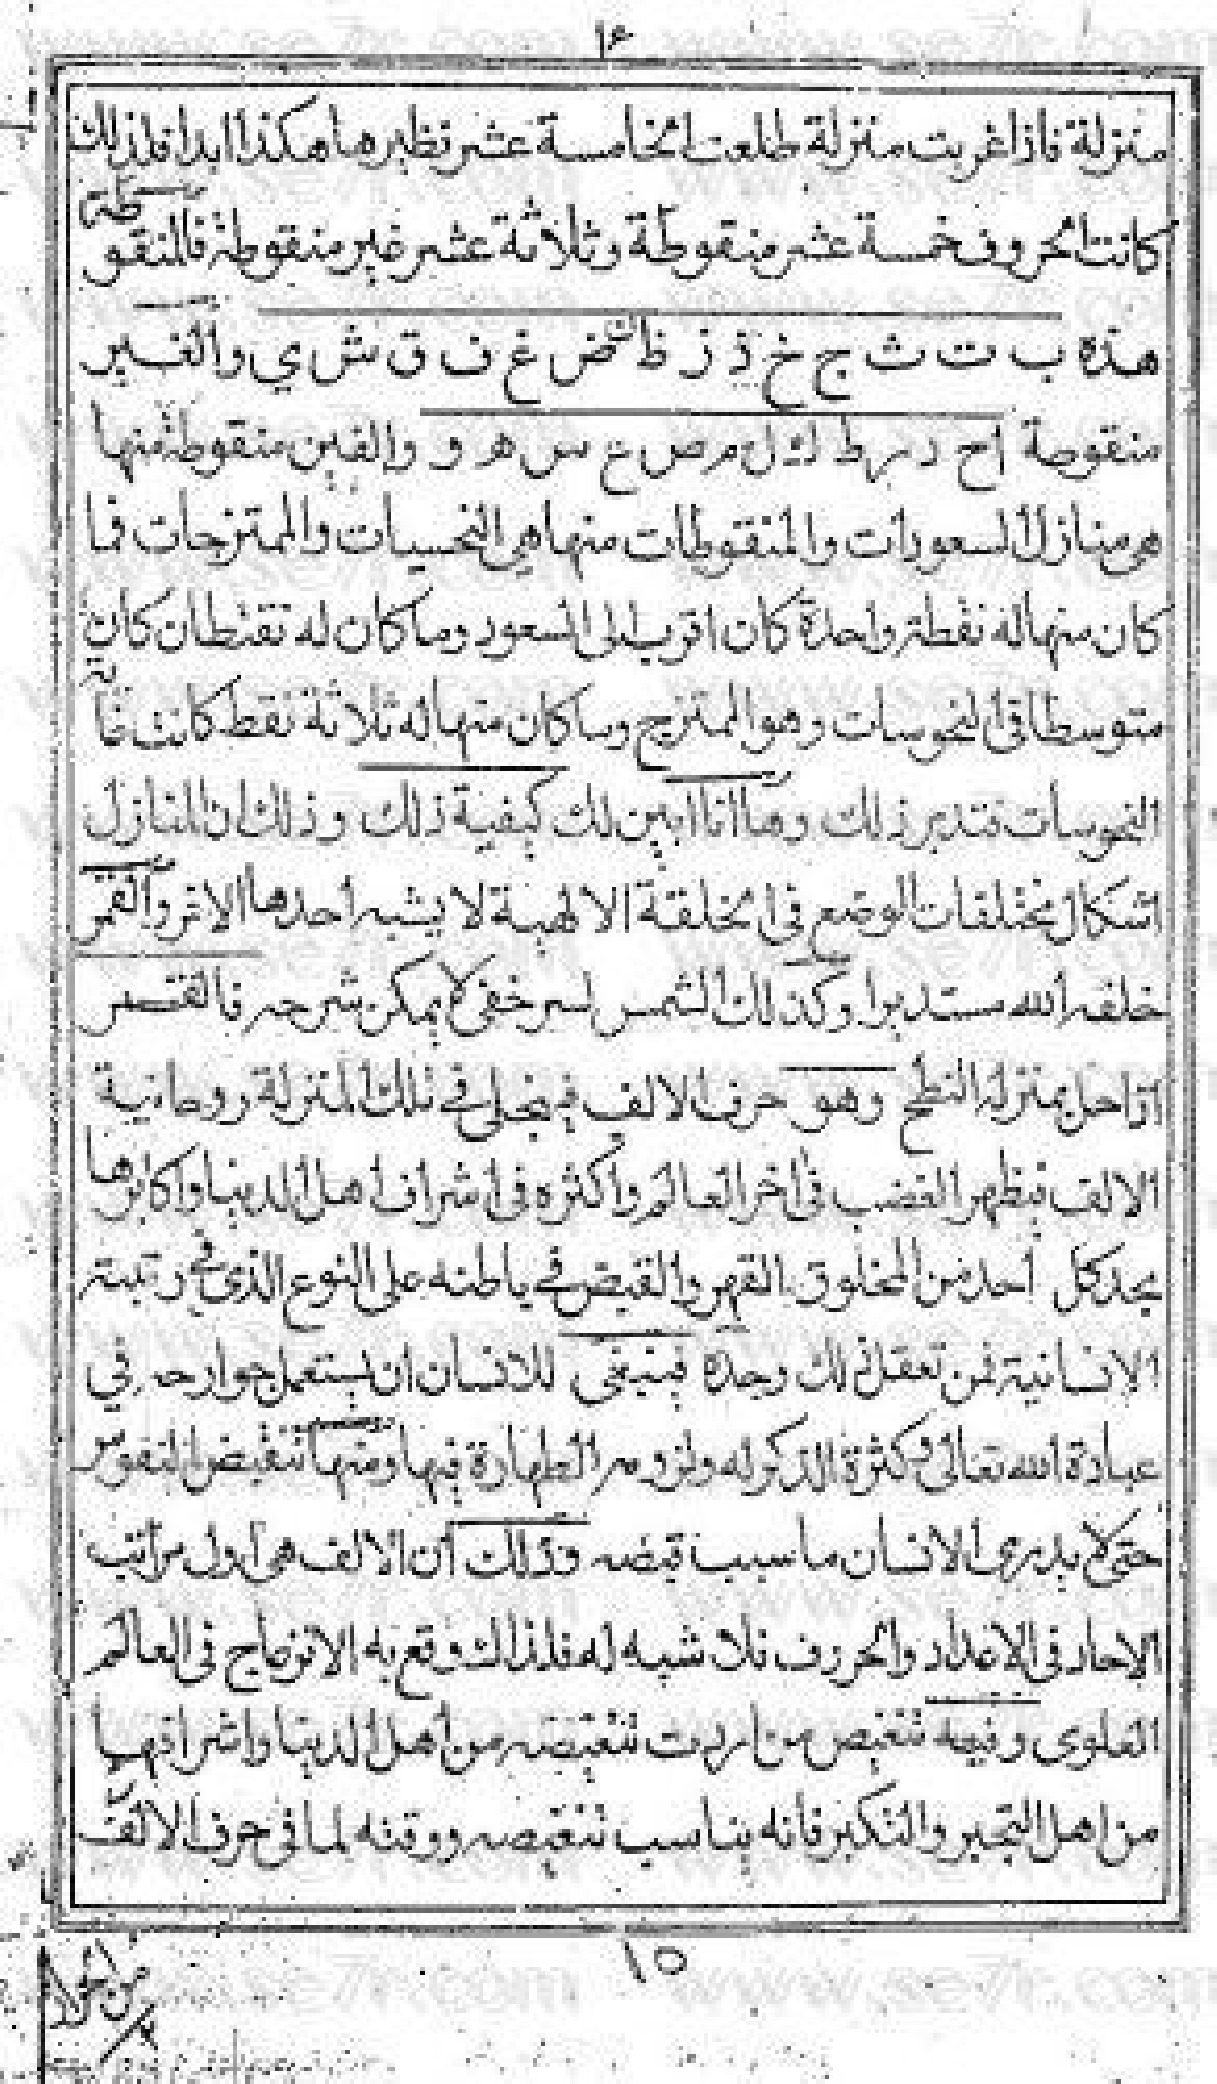 ١٤
منزلة فاذا غربت منزلة طلعت الخامسة عشر نظيرها هكذا ابدا فلذلك
كانت الحروف خمسة عشر منقوطة وثلاثة عشر غير منقوطة فالمنقوطة
هذه ب ت ث ج خ ذ ز ظ ض غ ف ق ش ي والغير
منقوطة ا ح د ر ط ك ل م ص ع س ه و والغير منقوطة منها
هي منازل السعودات والمنقوطات منها هي النحسيات والممتزجات فما
كان منها له نقطة واحدة كان اقرب الى السعود وما كان له نقطتان كان
متوسطا في النحوسات وهو الممتزج وما كان منها له ثلاثة نقط كانت غاية
النحوسات فتدبر ذلك وها انا ابين لك كيفية ذلك وذلك ان المنازل
اشكال مختلفات الوضع في الخلقة الالهية لا يشبه احدها الاخر والقمر
خلقه الله مستديرا وكذلك الشمس لسر خفي لا يمكن شرحه فالقمر
اذا حل بمنزلة النطح وهو حرف الالف فيتجلى في تلك المنزلة روحانية
الالف فيظهر الغضب في اخر العالم واكثره في اشراف اهل الدنيا واكابرها
يجد كل احد من المخلوق القهر والقبض في باطنه على النوع الذي في رتبته
الانسانية فمن تعقل ذلك وجده فينبغي للانسان ان يستعمل جوارحه في
عبادة الله تعالى وكثرة الذكر له ولزوم الطهارة فيها ومنها تنقبض النفوس
حتى لا يدرى الانسان ما سبب قبضه وذلك ان الالف هي اول مراتب
الاحاد في الاعداد والحروف فلا شبه له فلذلك وقع به الانزعاج في العالم
العلوى وفيه تنغيص من اردت تنغيصه من اهل الدنيا واشرافها
من اهل التجبر والتكبر فانه يناسب تنغيصه ووقته لما في حرف الالف
١٥